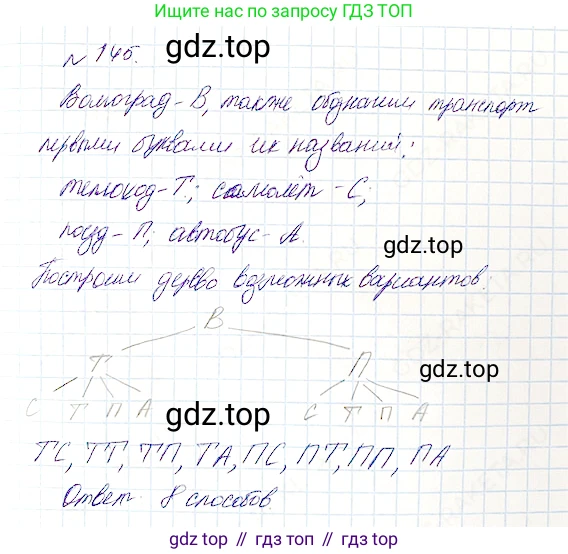 Ищите нас в поиске по запросу ГДЗ ТОП
№ 145.
gdz.top
Волгоград - В, также обозначим транспорт
первыми буквами их названий:
теплоход - Т; самолёт - С;
поезд - П; автобус - А.
gdz.top
Построим дерево возможных вариантов:
В
Т П
gdz.top
С Т П А С Т П А
gdz.top
ТС, ТТ, ТП, ТА, ПС, ПТ, ПП, ПА
Ответ: 8 способов.
gdz.top
гдз топ // гдз топ // гдз топ